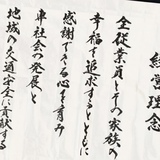 経営理念
全従業員としての家族の
幸福を追求するとともに
感謝できる心を育み
車社会の発展と
地域の交通安全に貢献する